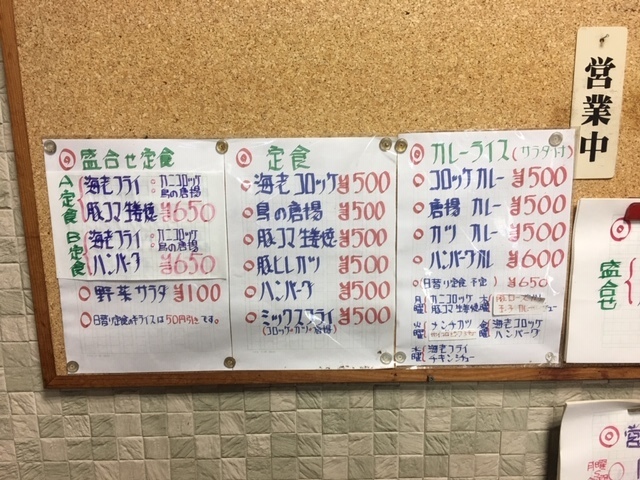 営業中
◎盛合せ定食
A定食
海老フライ ○カニコロッケ
豚コマ生姜焼 ○鳥の唐揚
¥650
B定食
海老フライ ○カニコロッケ
ハンバーグ ○鳥の唐揚
¥650
◎野菜サラダ ¥100
◎日替り定食のキライスは50円引きです。
◎定食
○海老コロッケ ¥500
○鳥の唐揚 ¥500
○豚コマ生姜焼 ¥500
○豚ヒレカツ ¥500
○ハンバーグ ¥500
○ミックスフライ ¥500
(コロッケ・カツ・唐揚)
◎カレーライス(サラダ付)
○コロッケカレー ¥500
○唐揚カレー ¥500
○カツカレー ¥500
○ハンバーグカレー ¥600
○日替り定食予定 ¥650
月曜 カニコロッケ 豚コマ生姜焼
火曜 メンチカツ
水曜 海老フライ チキンシチュー
木曜
金曜 海老コロッケ ハンバーグ
◎
盛合せ
◎営
月曜